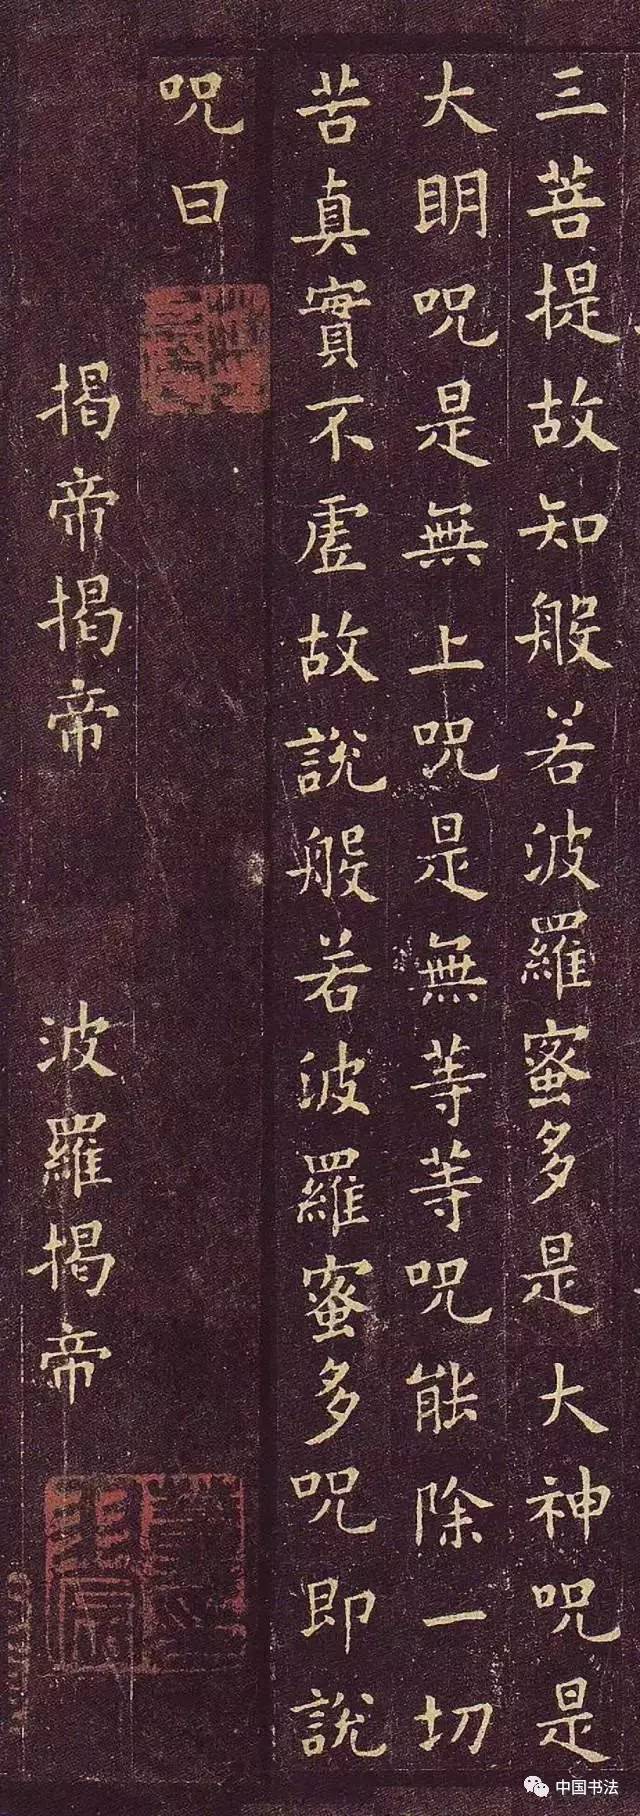 三菩提故知般若波羅蜜多是大神呪是
大明呪是無上呪是無等等呪能除一切
苦真實不虛故說般若波羅蜜多呪即說
呪曰
揭帝揭帝 波羅揭帝
中国书法